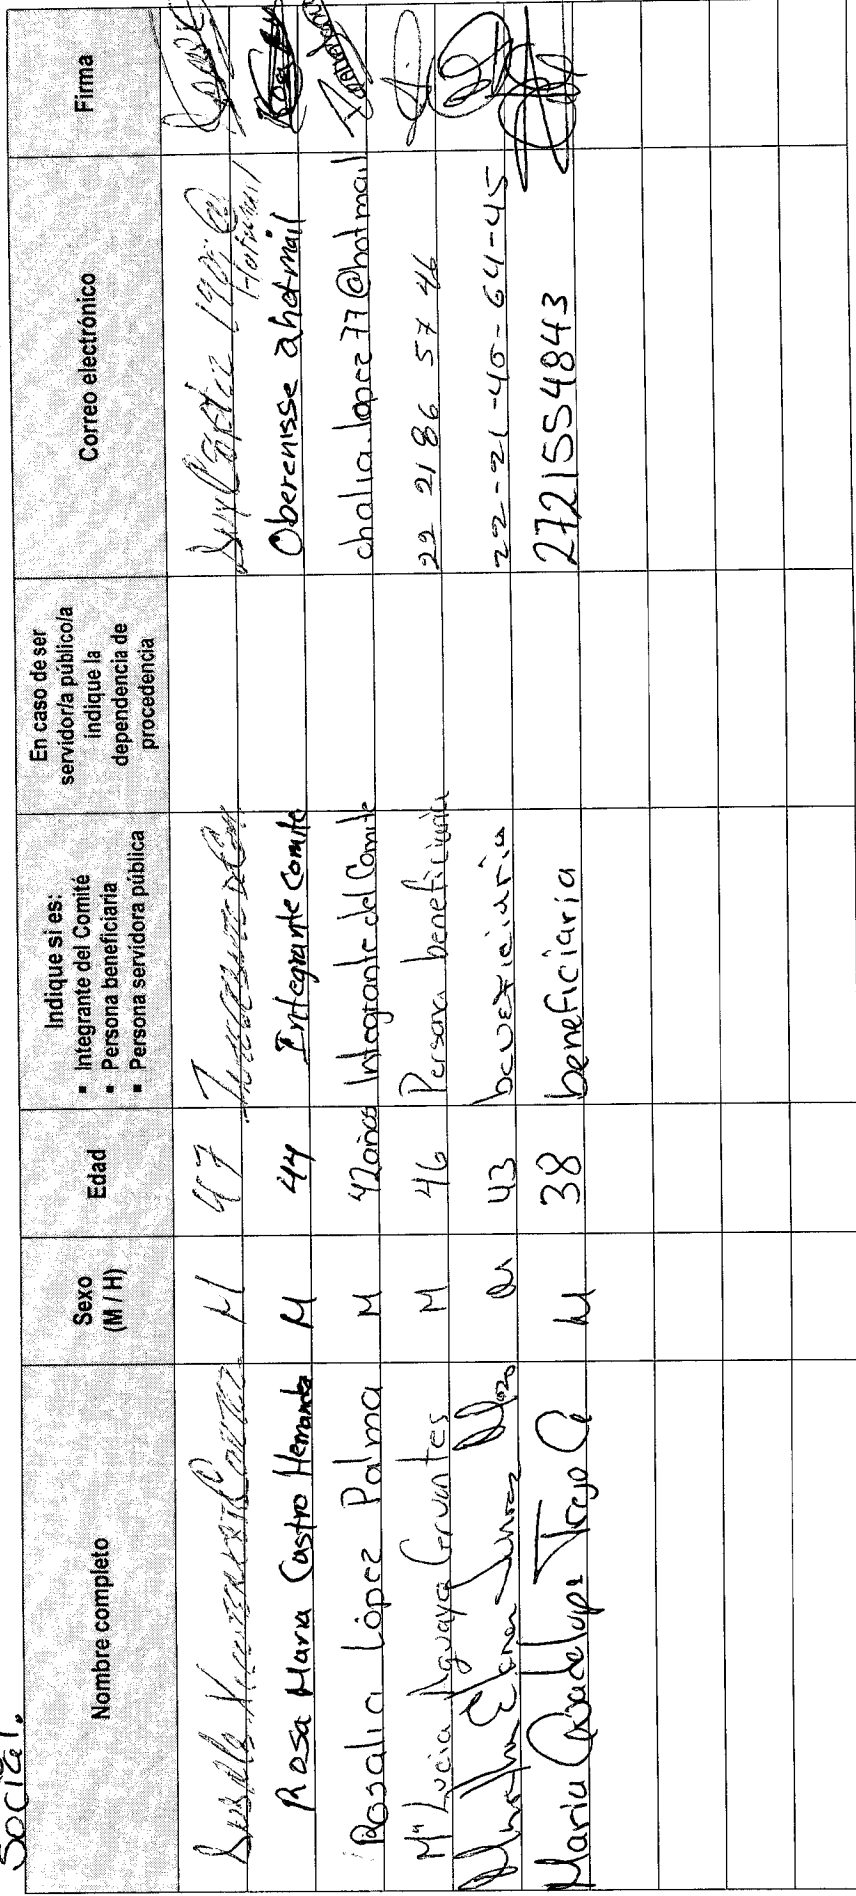 Social.
Nombre completo
Sexo
(M / H)
Edad
Indique si es:
▪ Integrante del Comité
▪ Persona beneficiaria
▪ Persona servidora pública
En caso de ser
servidor/a público/a
indique la
dependencia de
procedencia
Correo electrónico
Firma
M 47
Hotmail
Rosa Maria Castro Hernandez M 44 Integrante Comite Oberenisse ahotmail
Rosalia López Palma M 42 años Integrante del Comite chalia.lopez77@hotmail
Mª Lucia Aguayo Cervantes M 46 Persona beneficiaria 22 21 86 57 46
43 beneficiaria 22-21-40-64-45
Maria Guadalupe Trejo C M 38 beneficiaria 2721554843